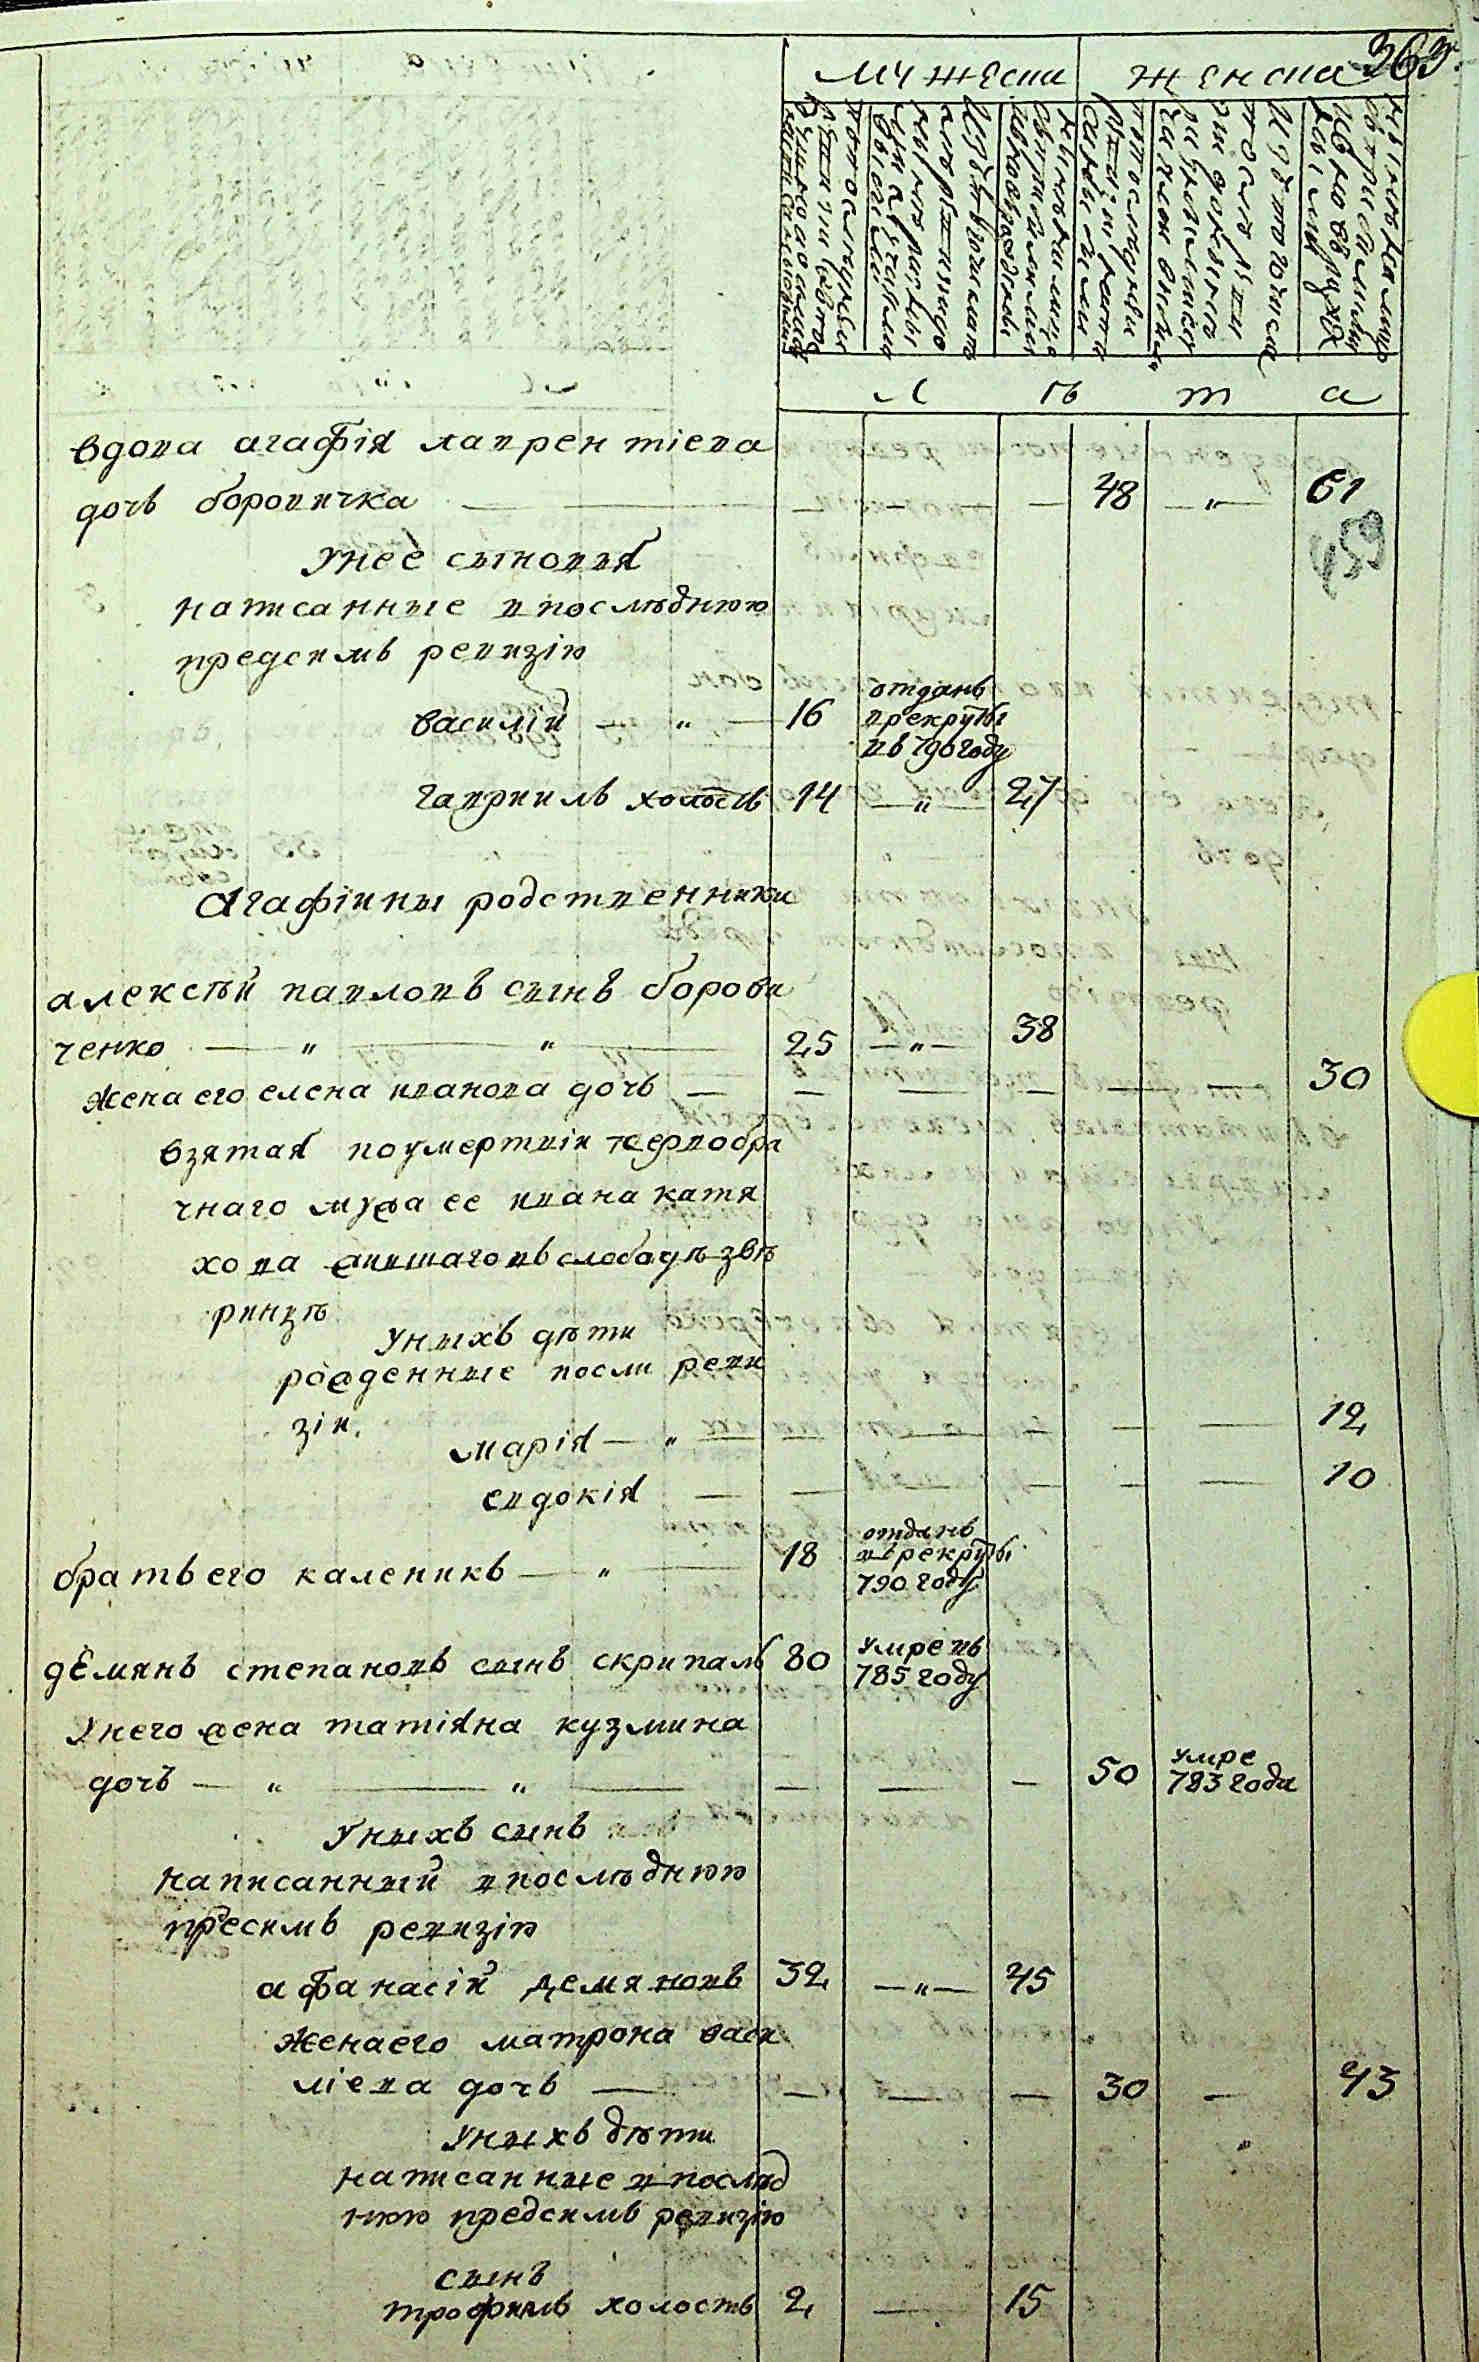 363.
мужеска женска
л ѣ т а
вдова агафія лаврентіева
дочь боровичка — — — 48 — „ — 61
459
унее сыновья
написанные впослѣднюю
предсимъ ревизію
василій — „ — 16 отданъ
врекруты
въ 790 году
гавриилъ холостъ 14 — „ — 27
Агафіины родственники
алексѣй павловъ сынъ борови
ченко — „ — „ — 25 — „ — 38
жена его елена иванова дочь — — — — — — 30
взятая поумертвіи первобра
чнаго мужа ее ивана катя
хова жившаго въ слободѣ звѣ
ринцѣ
Уныхъ дѣти
рожденные посли реви
зіи.
марія — „ — — — 12
евдокія — — — — — — 10
братъ его каленикъ — „ — 18 отданъ
въ рекруты
790 году
демянъ степановъ сынъ скрипаль 80 умре въ
785 году
Унего жена татіяна кузмина
дочь — „ — „ — — — — 50 умре
783 года
Уныхъ сынъ
написанный впослѣднюю
пресимъ ревизію
афанасій демяновъ 32 — „ — 45
жена его матрона васи
ліева дочь — — — — 30 — 43
Уныхъ дѣти
написанные впослѣд
нюю предсимъ ревизію
сынъ
трофимъ холостъ 2 — 15